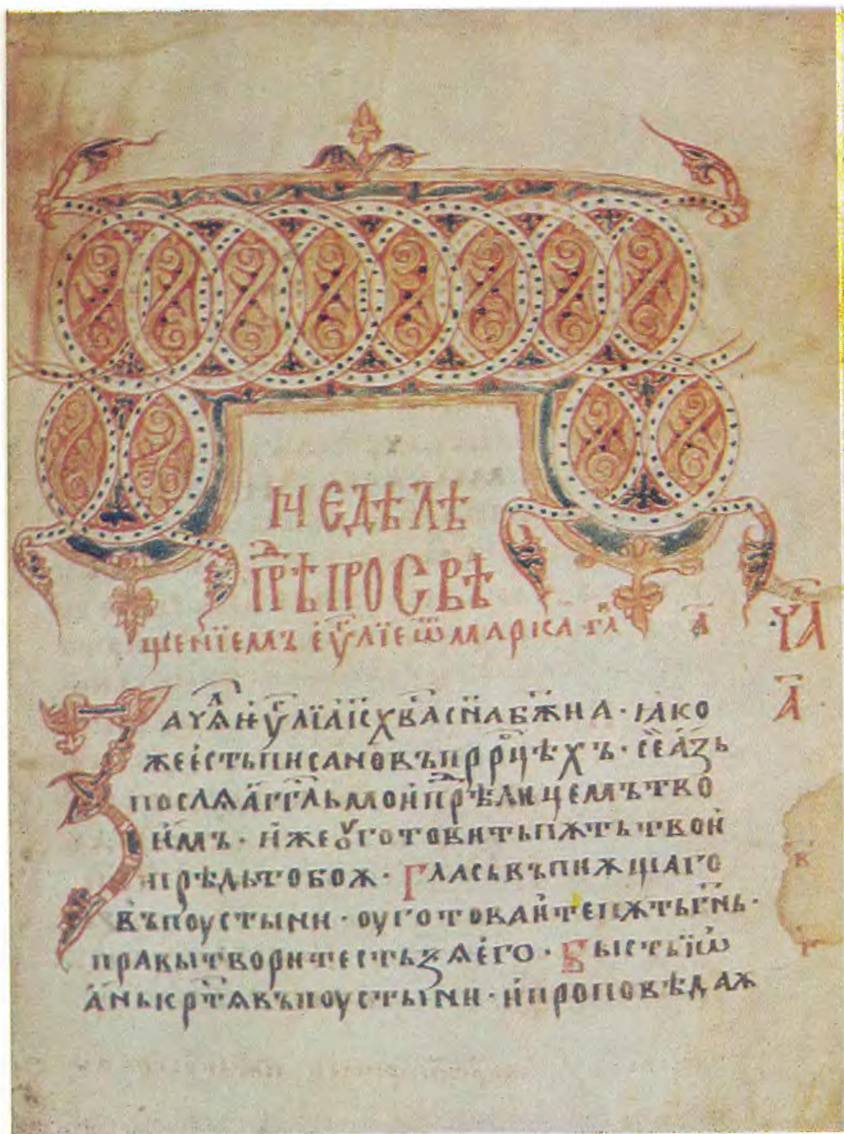 НЕДѢЛѢ
прⷣѣ просвѣ
щенїемъ еѵⷢ҇лїе ѿ марка гла҃ а҃
ЧА҃
А҃
Зачѧⷧ҇ еѵⷢ҇лїа іс҃ хв҃а сн҃а бж҃на · ꙗко
же есть писано въ пррⷪ҇цѣхъ · се азь
послѫ аггл҃ь мои прⷣѣ лицемъ тво
имъ · иже ѹготовить пѫть твои
прѣдь тобоѫ · Гласъ въпиѫщаго
въ поустыни · оуготоваите пѫть гн҃ь ·
правы творите стьзѧ его · Бысть їѡ
ань крⷭ҇тѧ въ поустыни · и проповѣдаѫ